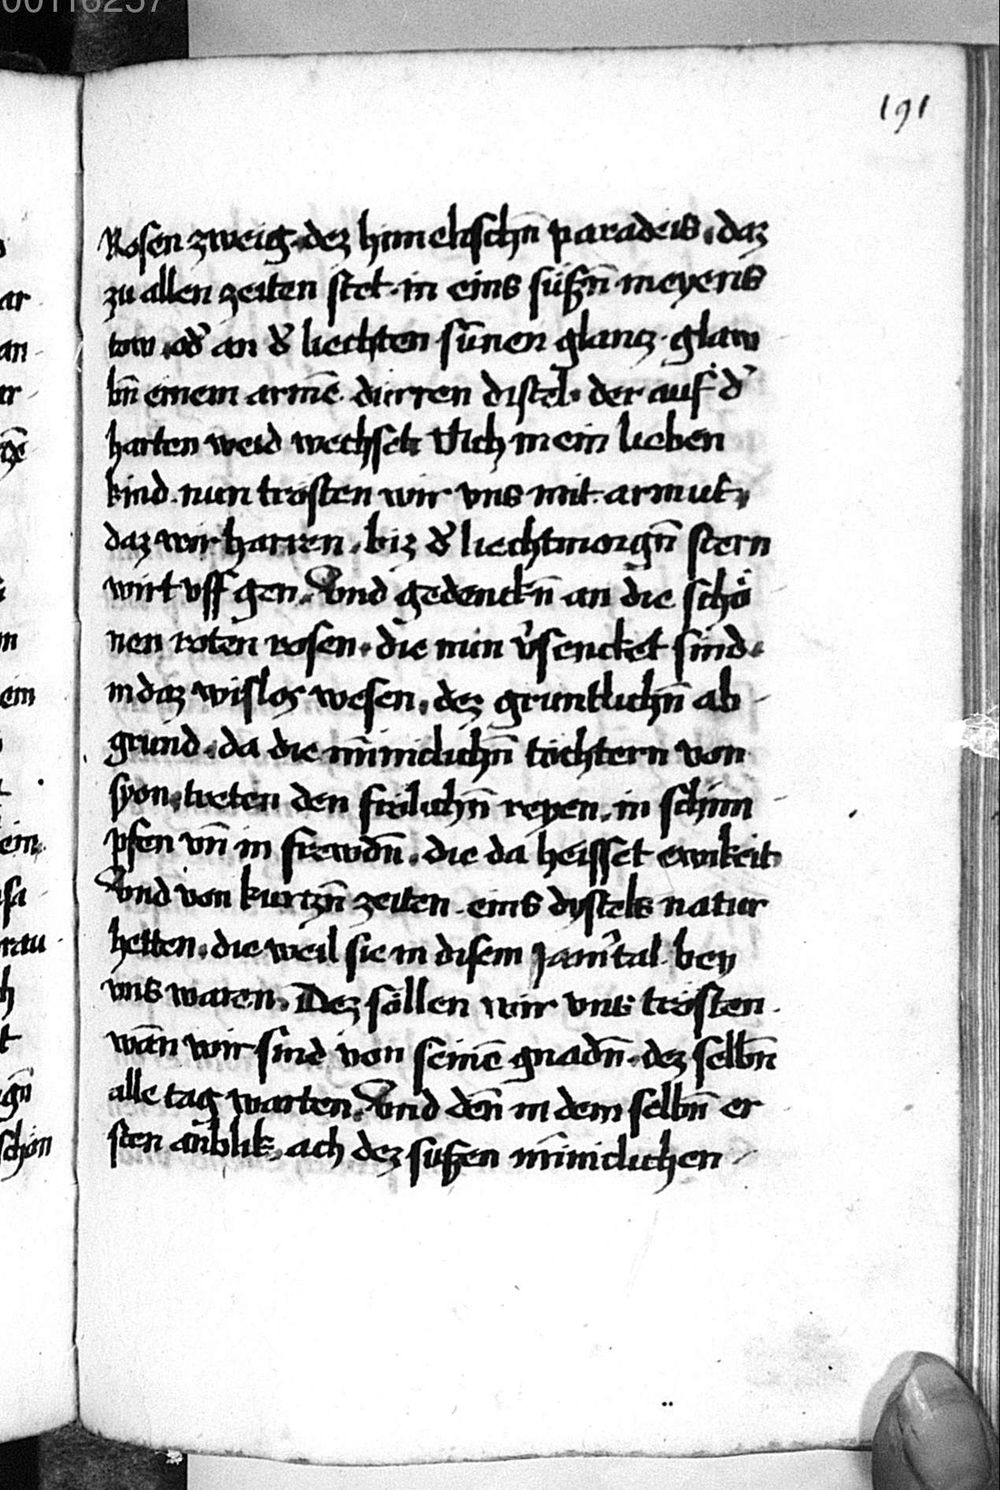 00116257
191
Rosen zweig · dez himelischn̄ paradeis · daz
zu allen zeiten stet · in eins süßn̄ meyens
tow · od̾ an d̾ liechten sūnen glancz · glaw
bn̄ einem armē dürren distel · der auf d̾
harten weid wechset mein lieben
kind · nun trösten wir vns mit armut ·
daz wir harren · biz d̾ liechtmorgn̄ stern
wirt vff gen · Vnd gedenckn̄ an die schö
nen roten rosen · die nun v̾sencket sind ·
in daz wisloz wesen · dez gruntlichn̄ ab
grund · da die mīniclichn̄ töchtern von
syon · treten den frölichn̄ reyen · in schim
pfen vn̄ in frewdn̄ · die da heisset ewikeit
Vnd von kurtzn̄ zeiten · eins dystels natur
hetten · die weil sie in disem Jam̾tal bey
vns waren · Dez söllen wir vns trösten ·
wān wir sind von seinē gnadn̄ · dez selbn̄
alle tag warten · Vnd den̄ in dem selbn̄ er
sten anblik · ach dez süßen mīniclichen